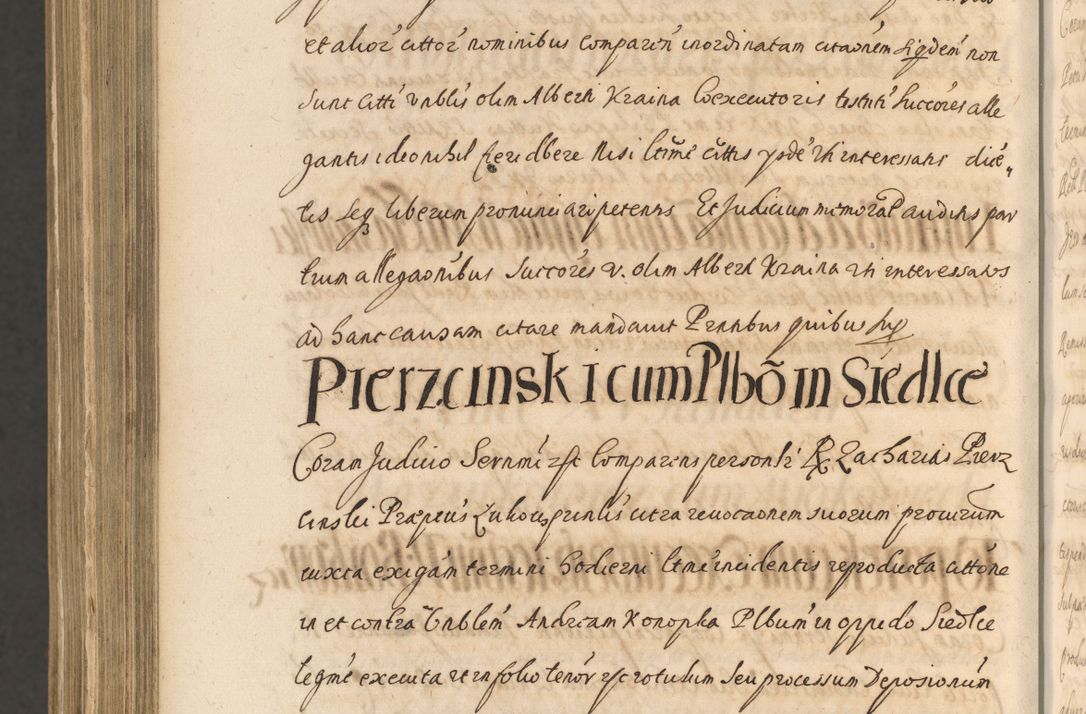 et alior̄ cittor̄ nominibus comparen̄ inordinatam citaōnem siq̄dem̄ non
sunt citti vnblis olim Alberti Kraina Coexecutoris testnti succores alle
gantis ideo nihil fieri dbere nisi ltime cittis ypsde rti interessatis dice„
tis seq liberum pronunciari petentis Et Judicium memorat auditis par
tium allegaonibus succores v. olim Alberti Kraina rti interessatos
ad hanc causam citare mandauit Pntibus quibus sup
Pierzcinski cum Plbō in Siedlce
Coram Judicio Sernmi rst Comparens personlr R Zacharias Pierz
cinski Praeptus Lukouy prinlis citra reuocaonem suorum procurum
iuxta exigam termini hodierni ltme incidentis reproducta cittone
in et contra Vnblem Andream Konopka Plbum in oppido Siedlce
legme executa et in folio tenor rst rotulum seu processum Deposionum